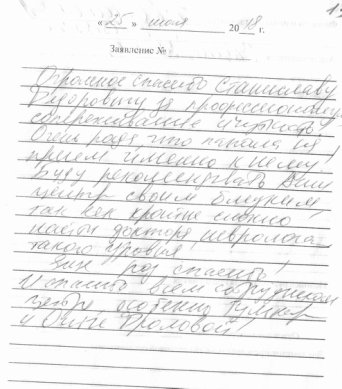 «25» июля 2018 г.
Заявление №
Огромное спасибо Станиславу
Федоровичу за профессионализм,
сопереживание и чуткость.
Очень рада что попала на
прием именно к нему!
Буду рекомендовать Ваш
центр своим близким,
так как крайне сложно
найти доктора, невролога
такого уровня!
Еще раз спасибо!
И спасибо всем сотрудникам
центра, особенно
и Фроловой!